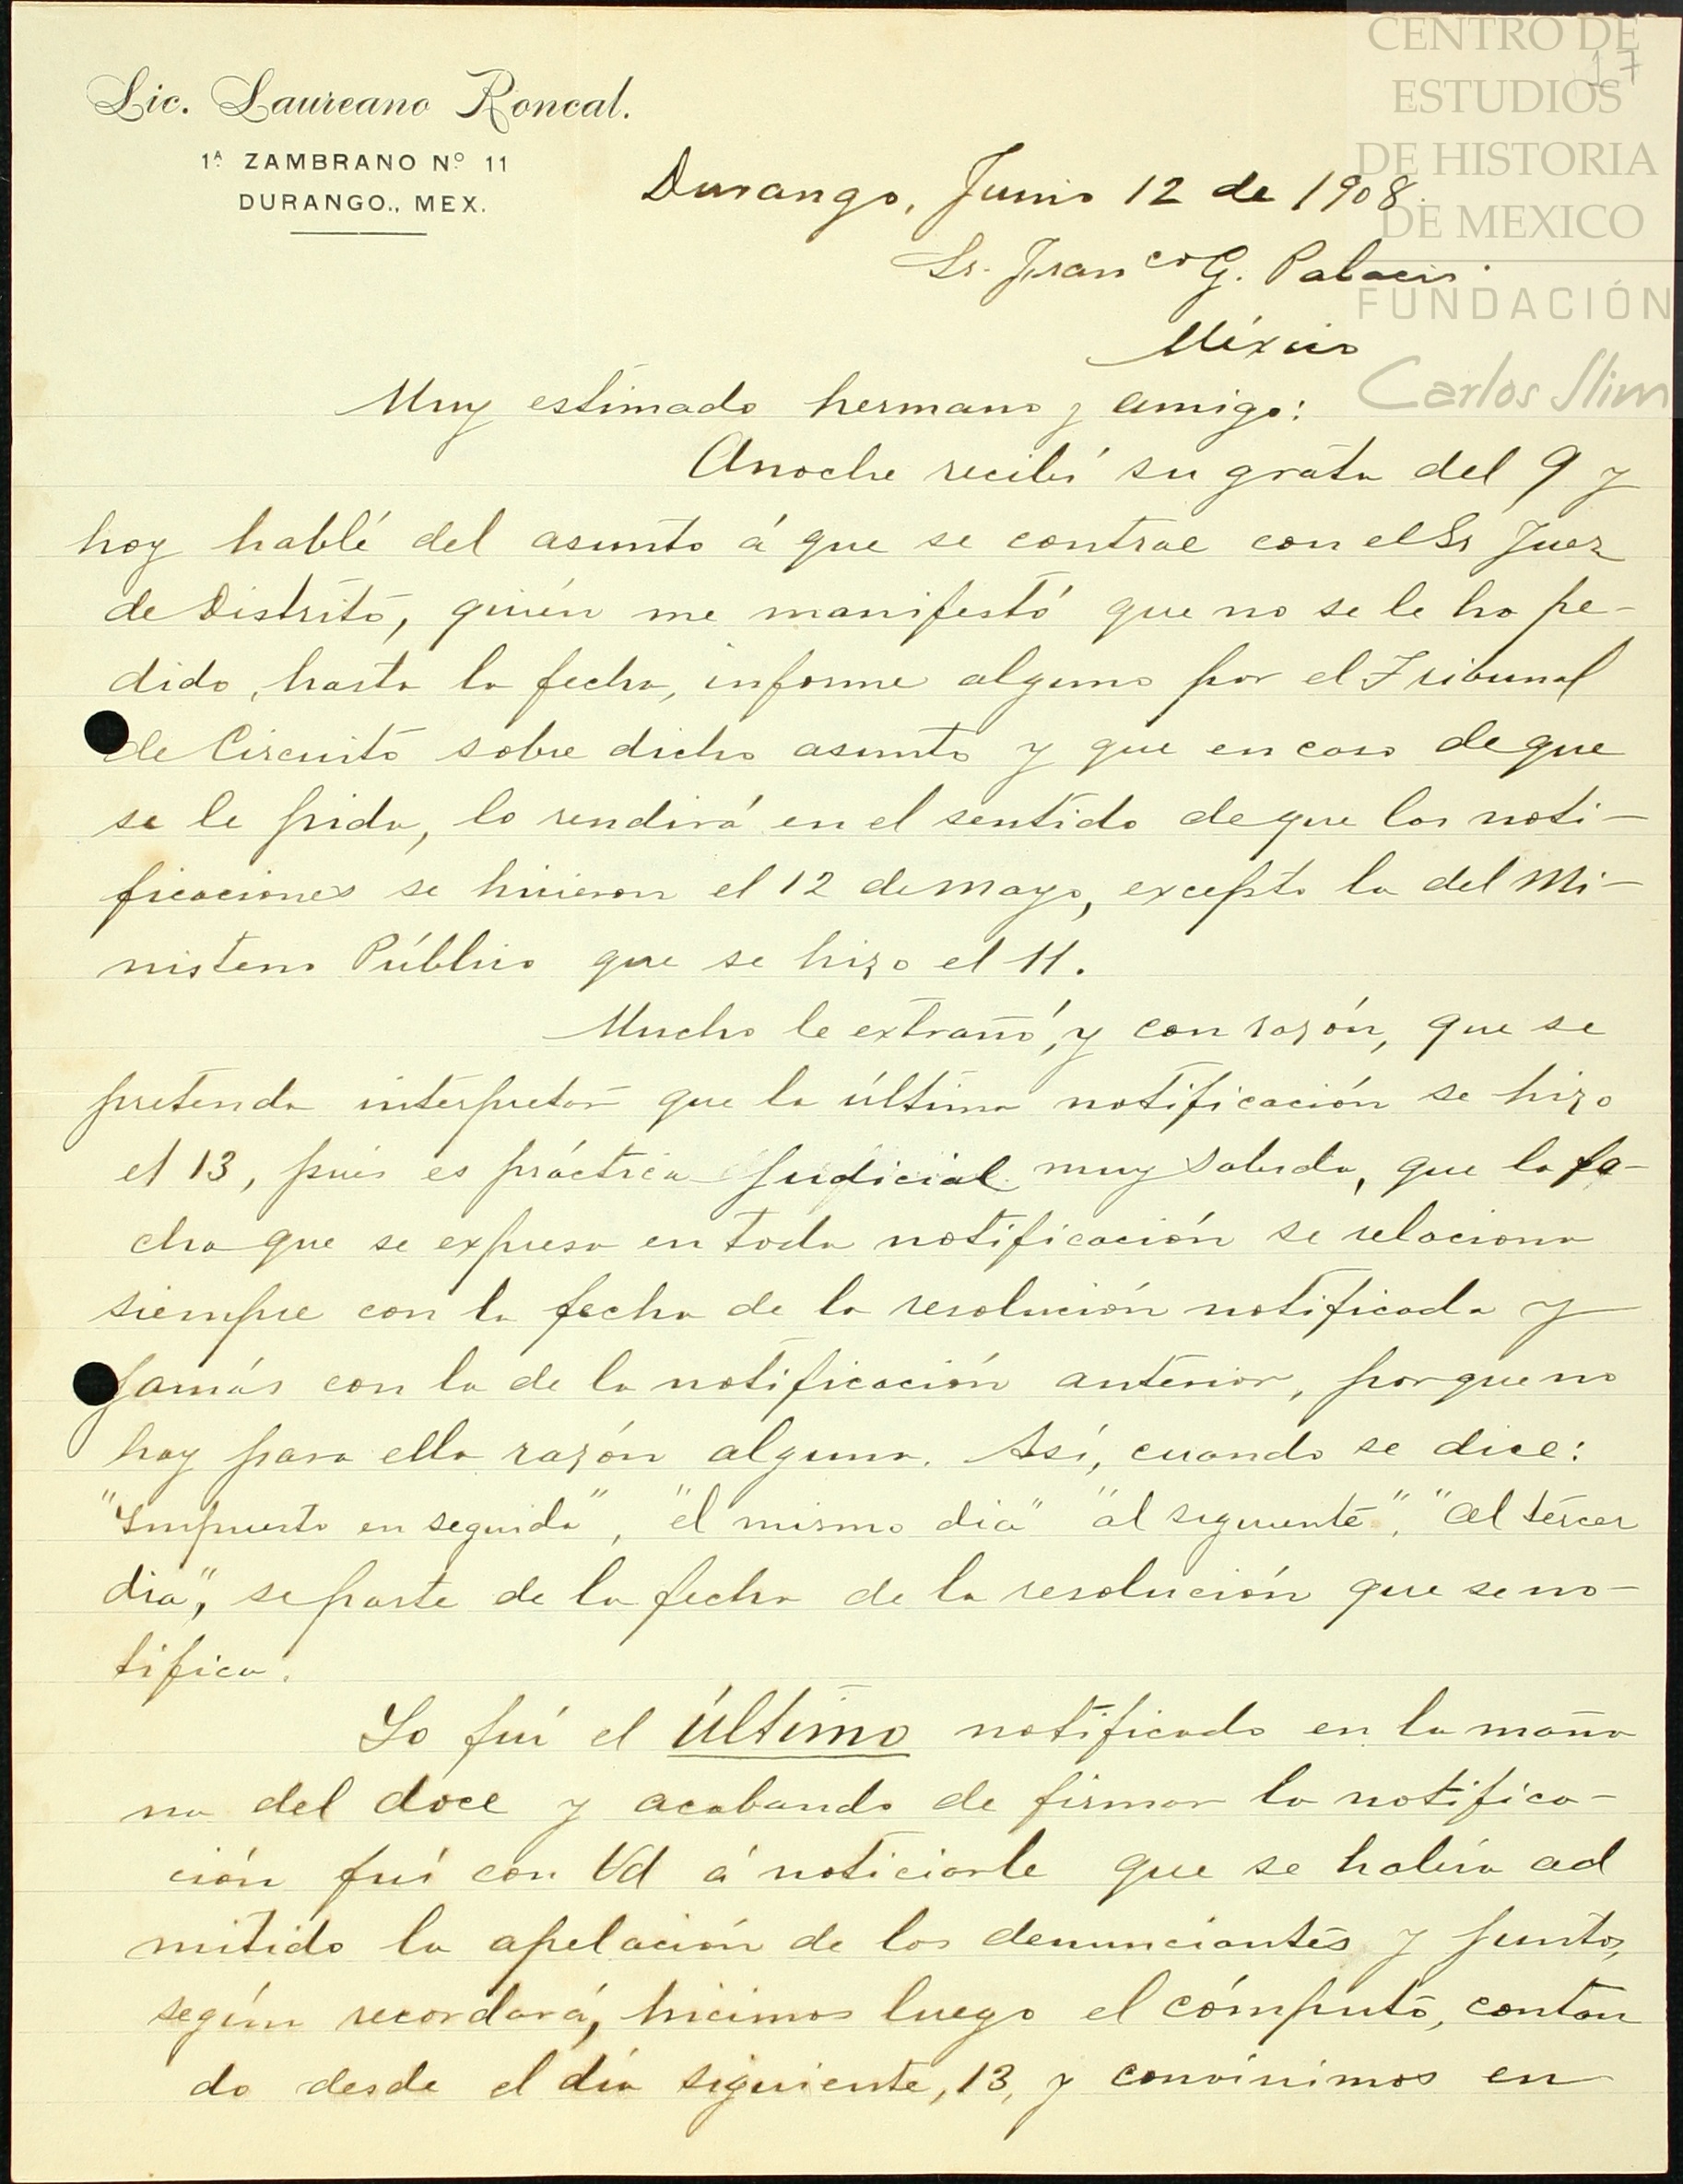 CENTRO DE
ESTUDIOS
DE HISTORIA
DE MEXICO
FUNDACIÓN
Carlos Slim
17
Lic. Laureano Roncal.
1ª ZAMBRANO Nº 11
DURANGO., MEX.
Durango, Junio 12 de 1908.
Sr. Franco G. Palacio.
México
Muy estimado hermano y amigo:
Anoche recibí su grata del 9 y
hoy hablé del asunto á que se contrae con el Sr Juez
de Distrito, quién me manifestó que no se le ha pe-
dido, hasta la fecha, informe alguno por el Tribunal
de Circuito sobre dicho asunto y que en caso de que
se le pida, lo rendirá en el sentido de que las noti-
ficaciones se hicieron el 12 de mayo, excepto la del Mi-
nisterio Público que se hizo el 11.
Mucho le extrañó, y con razón, que se
pretenda interpretar que la última notificación se hizo
el 13, pues es práctica judicial muy sabida, que la fe-
cha que se expresa en toda notificación se relaciona
siempre con la fecha de la resolución notificada y
jamás con la de la notificación anterior, porque no
hay para ello razón alguna. Así, cuando se dice:
"Impuesto en seguida", "el mismo dia" "al siguiente", "al tercer
dia", se parte de la fecha de la resolución que se no-
tifica.
Yo fuí el último notificado en la maña
na del doce y acabando de firmar la notifica-
ción fuí con Vd á noticiarle que se había ad
mitido la apelación de los denunciantes y juntos,
según recordará, hicimos luego el cómputo, contan
do desde el día siguiente, 13, y convinimos en